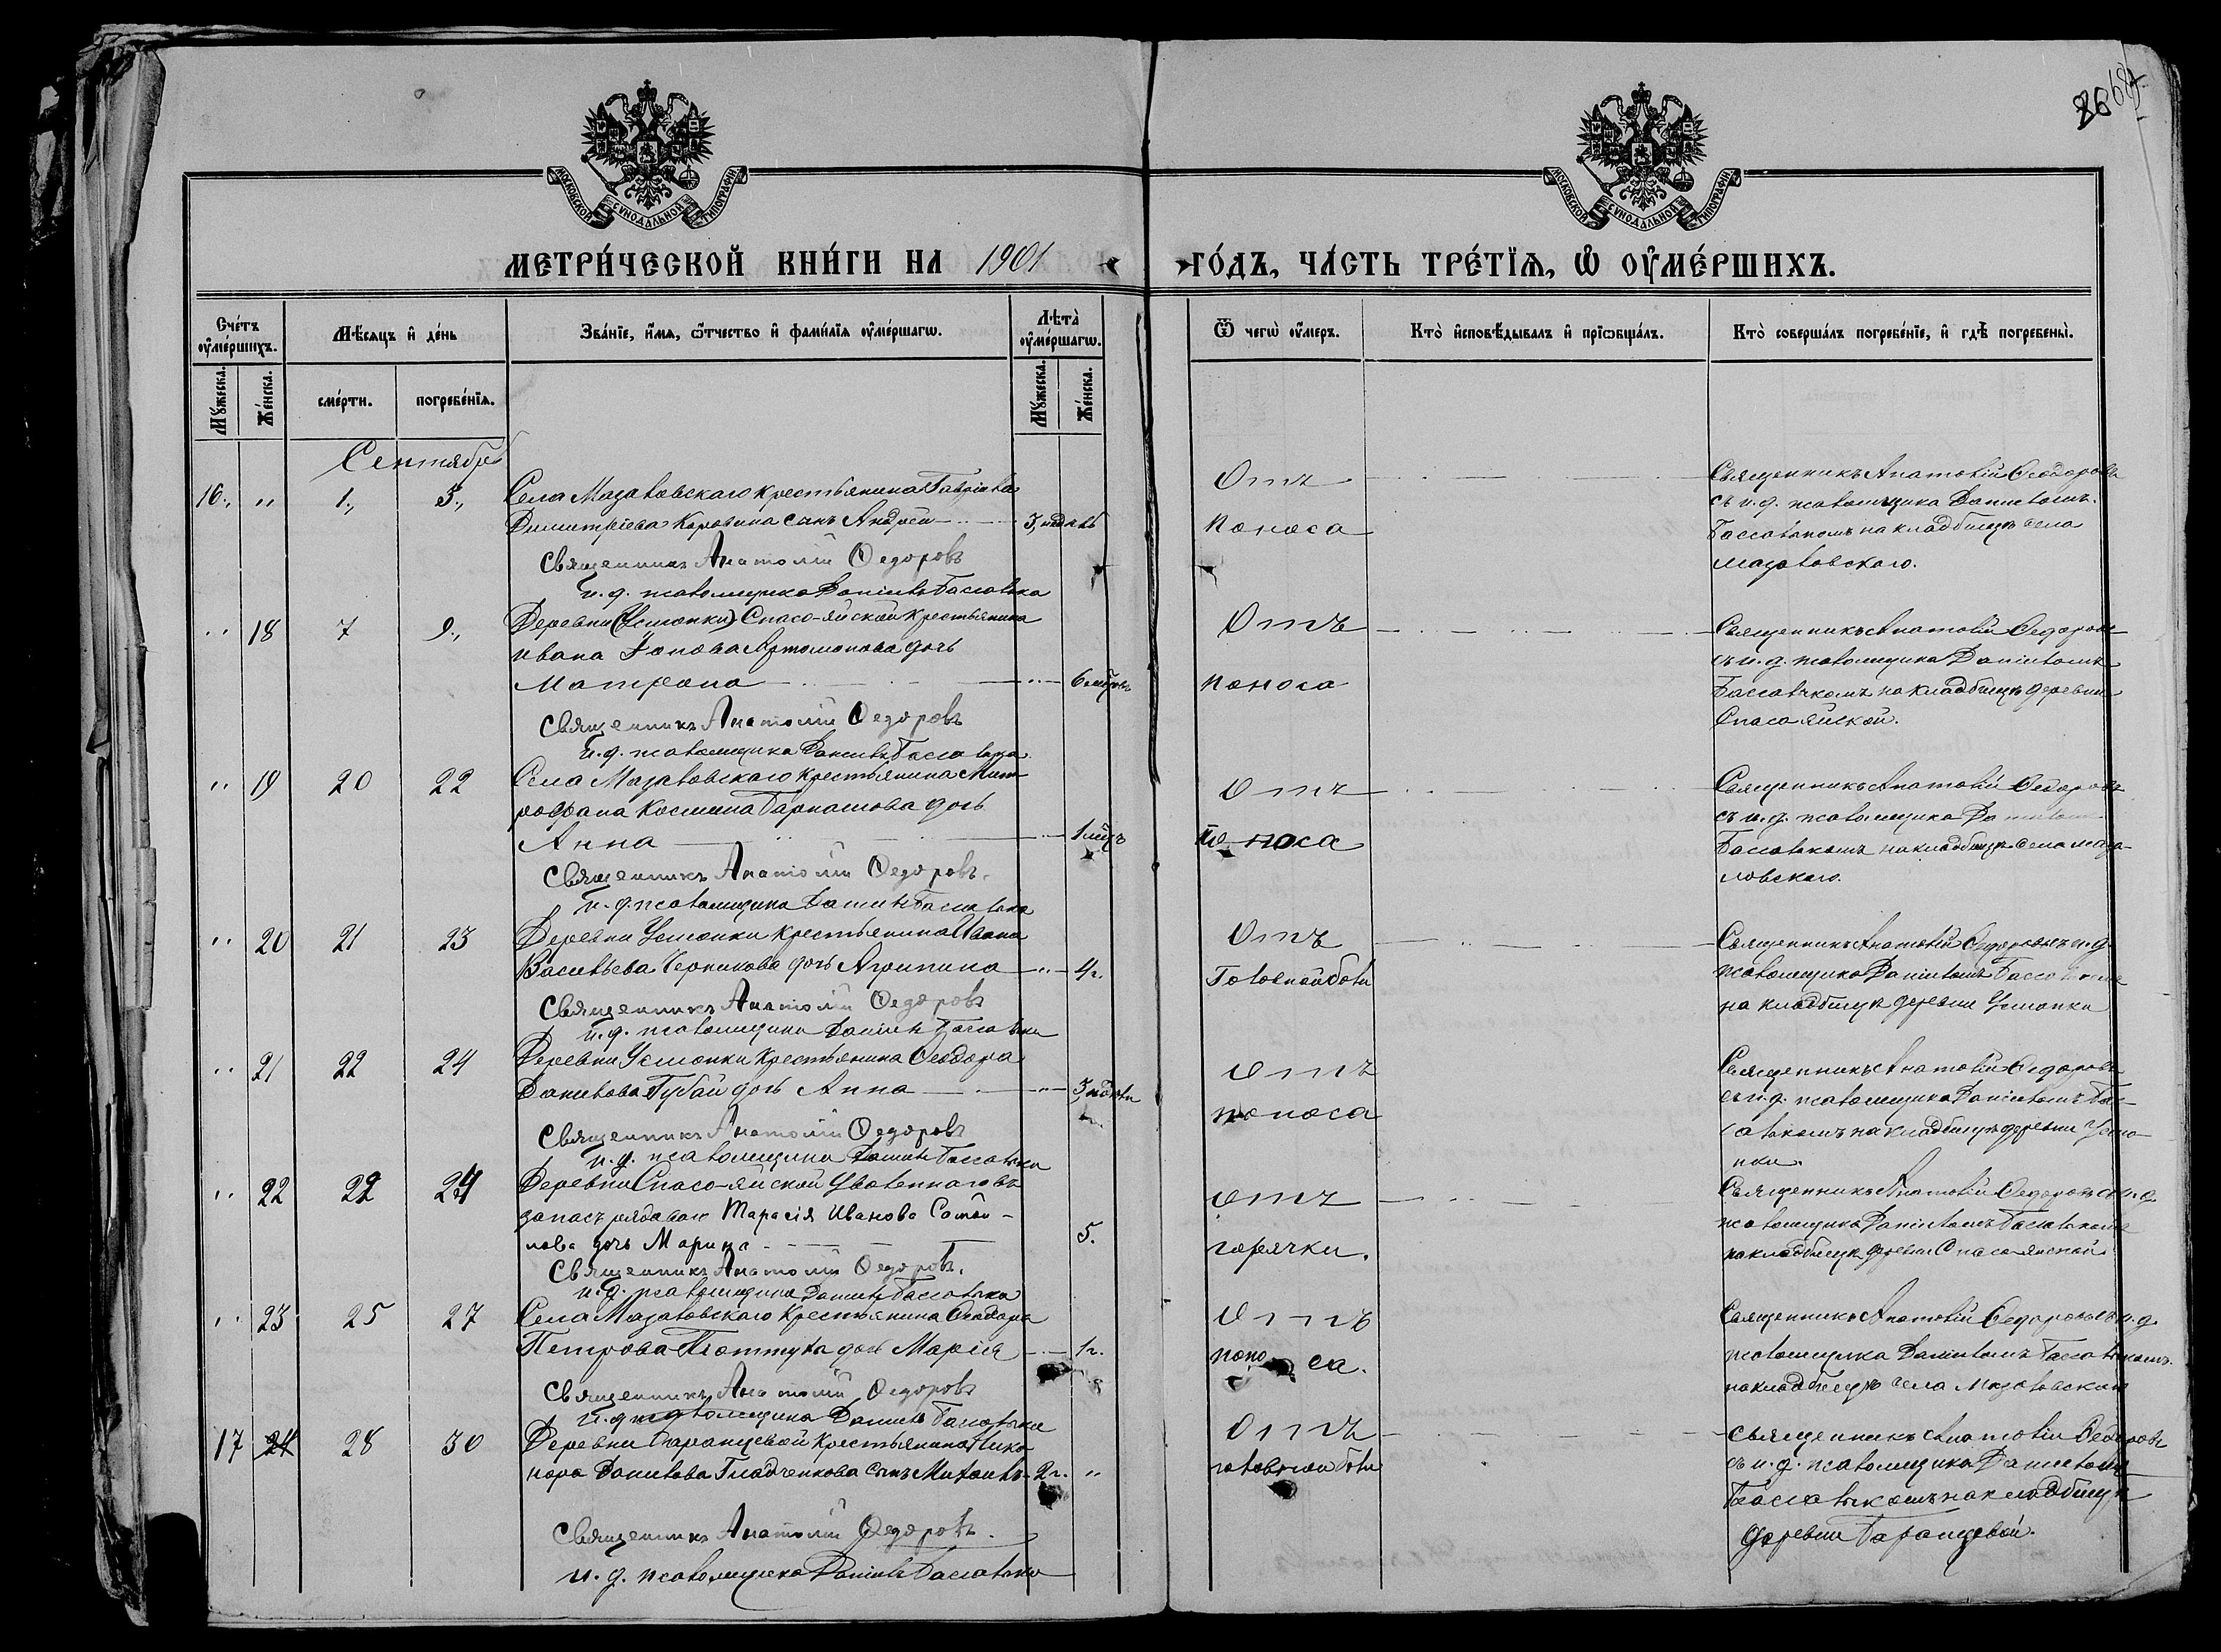 26 687
МОСКОВСКОЙ СУНОДАЛЬНОЙ ТИПОГРАФІИ
МОСКОВСКОЙ СУНОДАЛЬНОЙ ТИПОГРАФІИ
МЕТРИ́ЧЕСКОЙ КНИ́ГИ НА 1901 ГО́ДЪ, ЧА́СТЬ ТРЕ́ТЇѦ, Ѡ ОУ҆МЕ́РШИХЪ.
Сче́тъ оу҆ме́ршихъ.
Мѣ́сяцъ и҆ де́нь
Зва́нїе, и҆́мя, ѻ҆́тчество и҆ фами́лїя оу҆ме́ршагѡ.
Лѣта̀ оу҆ме́ршагѡ.
Ѿ чегѡ̀ оу҆́меръ.
Кто̀ и҆сповѣ́дывалъ и҆ прїѡбща́лъ.
Кто̀ соверша́лъ погребе́нїе, и҆ гдѣ̀ погребены̀.
Мꙋ́жеска. Же́нска. сме́рти. погребе́нїя. Мꙋ́жеска. Же́нска.
Сентябрь
16., " 1., 3., Села Мазаловскаго крестьянина Гавріила
Димитріева Коровина сынъ Андрей 3 недѣль
Священникъ Анатолій Ѳедоровъ
и. д. псаломщика Даніилъ
Отъ
поноса
Священникъ Анатолій Ѳеодоровъ
съ и. д. псаломщика Даніиломъ
на кладбищѣ села
Мазаловскаго.
" 18 7 9., Деревни (Усманки) Спасо-яйской крестьянина
Ивана Іонова Артамонова дочь
Матрона " 6 мѣсяц
Священникъ Анатолій Ѳедоровъ
и. д. псаломщика Даніилъ
Отъ
поноса
Священникъ Анатолій Ѳедоровъ
съ и. д. псаломщика Даніиломъ
на кладбищѣ деревни
Спасо яйской.
" 19 20 22 Села Мазаловскаго крестьянина Мит-
рофана Косьмина дочь
Анна " 1 мѣц
Священникъ Анатолій Ѳедоровъ.
и. д. псаломщика Даніилъ
Отъ
поноса
Священникъ Анатолій Ѳеодоровъ
съ и. д. псаломщика
на кладбищѣ села Маза-
ловскаго.
" 20 21 23 Деревни Усманки крестьянина Ивана
Васильева Черникова дочь Агрипина " 4 г.
Священникъ Анатолій Ѳедоровъ
и. д. псаломщика Даніилъ
Отъ
Головной боли
Священникъ Анатолій Ѳедоровъ съ и. д.
псаломщика Даніиломъ
на кладбищѣ деревни Усманки
" 21 22 24 Деревни Усманки крестьянина Ѳеодора
Данилова Губай дочь Анна " 3 недѣли
Священникъ Анатолій Ѳедоровъ
и. д. псаломщика Даніилъ
отъ
поноса
Священникъ Анатолій Ѳедоровъ
съ и. д. псаломщика Даніиломъ
на кладбищѣ деревни Усма-
нки.
" 22 22 24 Деревни Спасо-яйской уволеннаго въ
запасъ рядоваго Тарасія Иванова
дочь Марина 5.
Священникъ Анатолій Ѳедоровъ.
и. д. псаломщика Даніилъ
отъ
горячки.
Священникъ Анатолій Ѳедоровъ съ и. д.
псаломщика Даніиломъ
на кладбищѣ деревни Спасо-яйской
" 23 25 27 Села Мазаловскаго крестьянина Ѳеодора
Петрова дочь Марія " 1 г.
Священникъ Анатолій Ѳедоровъ
и. д. псаломщика Даніилъ
отъ
поноса.
Священникъ Анатолій Ѳедоровъ съ и. д.
псаломщика Даніиломъ
на кладбищѣ села Мазаловскаго
17 24 28 30 Деревни Баранцевой крестьянина Ника-
нора Данилова Гладченкова сынъ Михаилъ 2 г. "
Священникъ Анатолій Ѳедоровъ.
и. д. псаломщика Даніилъ
Отъ
головной боли
Священникъ Анатолій Ѳедоровъ
съ и. д. псаломщика Даніиломъ
на кладбищѣ
деревни Баранцевой.